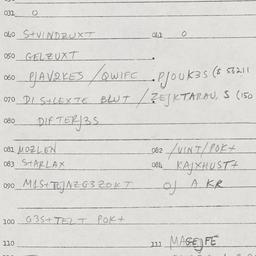 032 0
040 S+VINDZUXT 041 0
050 GELZUXT
060 PJAV2KES / QWIFE . PJOUK3S (S 56211
070 DIS+LEXTE BLUT / ZEJKTARAU, S (150
080 DIFTERJ3S
081 MOZLEN 082 /VINT/POK+
083 STARLAX 084 KAJXHUST+
090 OJ A KR
100 G3S+TELT POK+
110 111 MAGEJFE